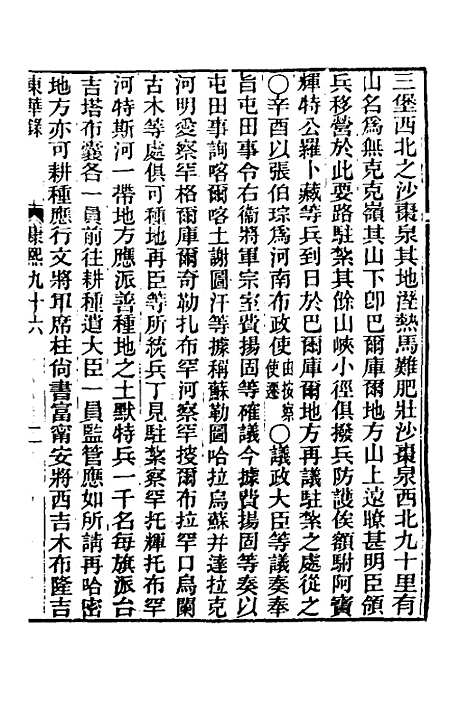 三堡西北之沙棗泉其地溼熱馬難肥壯沙棗泉西北九十里有
山名爲無克克嶺其山下卽巴爾庫爾地方山上遠瞭甚明臣領
兵移營於此要路駐紮其餘山峽小徑俱撥兵防護俟額駙阿寶
輝特公羅卜藏等兵到日於巴爾庫爾地方再議駐紮之處從之
〇辛酉以張伯琮爲河南布政使由按察使遷〇議政大臣等議奏奉
旨屯田事令右衞將軍宗室費揚固等確議今據費揚固等奏以
屯田事詢喀爾喀土謝圖汗等據稱蘇勒圖哈拉烏蘇并達拉克
河明愛察罕格爾庫爾奇勒扎布罕河察罕拕爾布拉罕口烏闌
古木等處俱可種地再臣等所統兵丁見駐紮察罕托輝托布罕
河特斯河一帶地方應派善種地之土默特兵一千名每旗派台
吉塔布囊各一員前往耕種遣大臣一員監管應如所請再哈密
地方亦可耕種應行文將軍席柱尙書富甯安將西吉木布隆吉
東華錄
康熙九十六